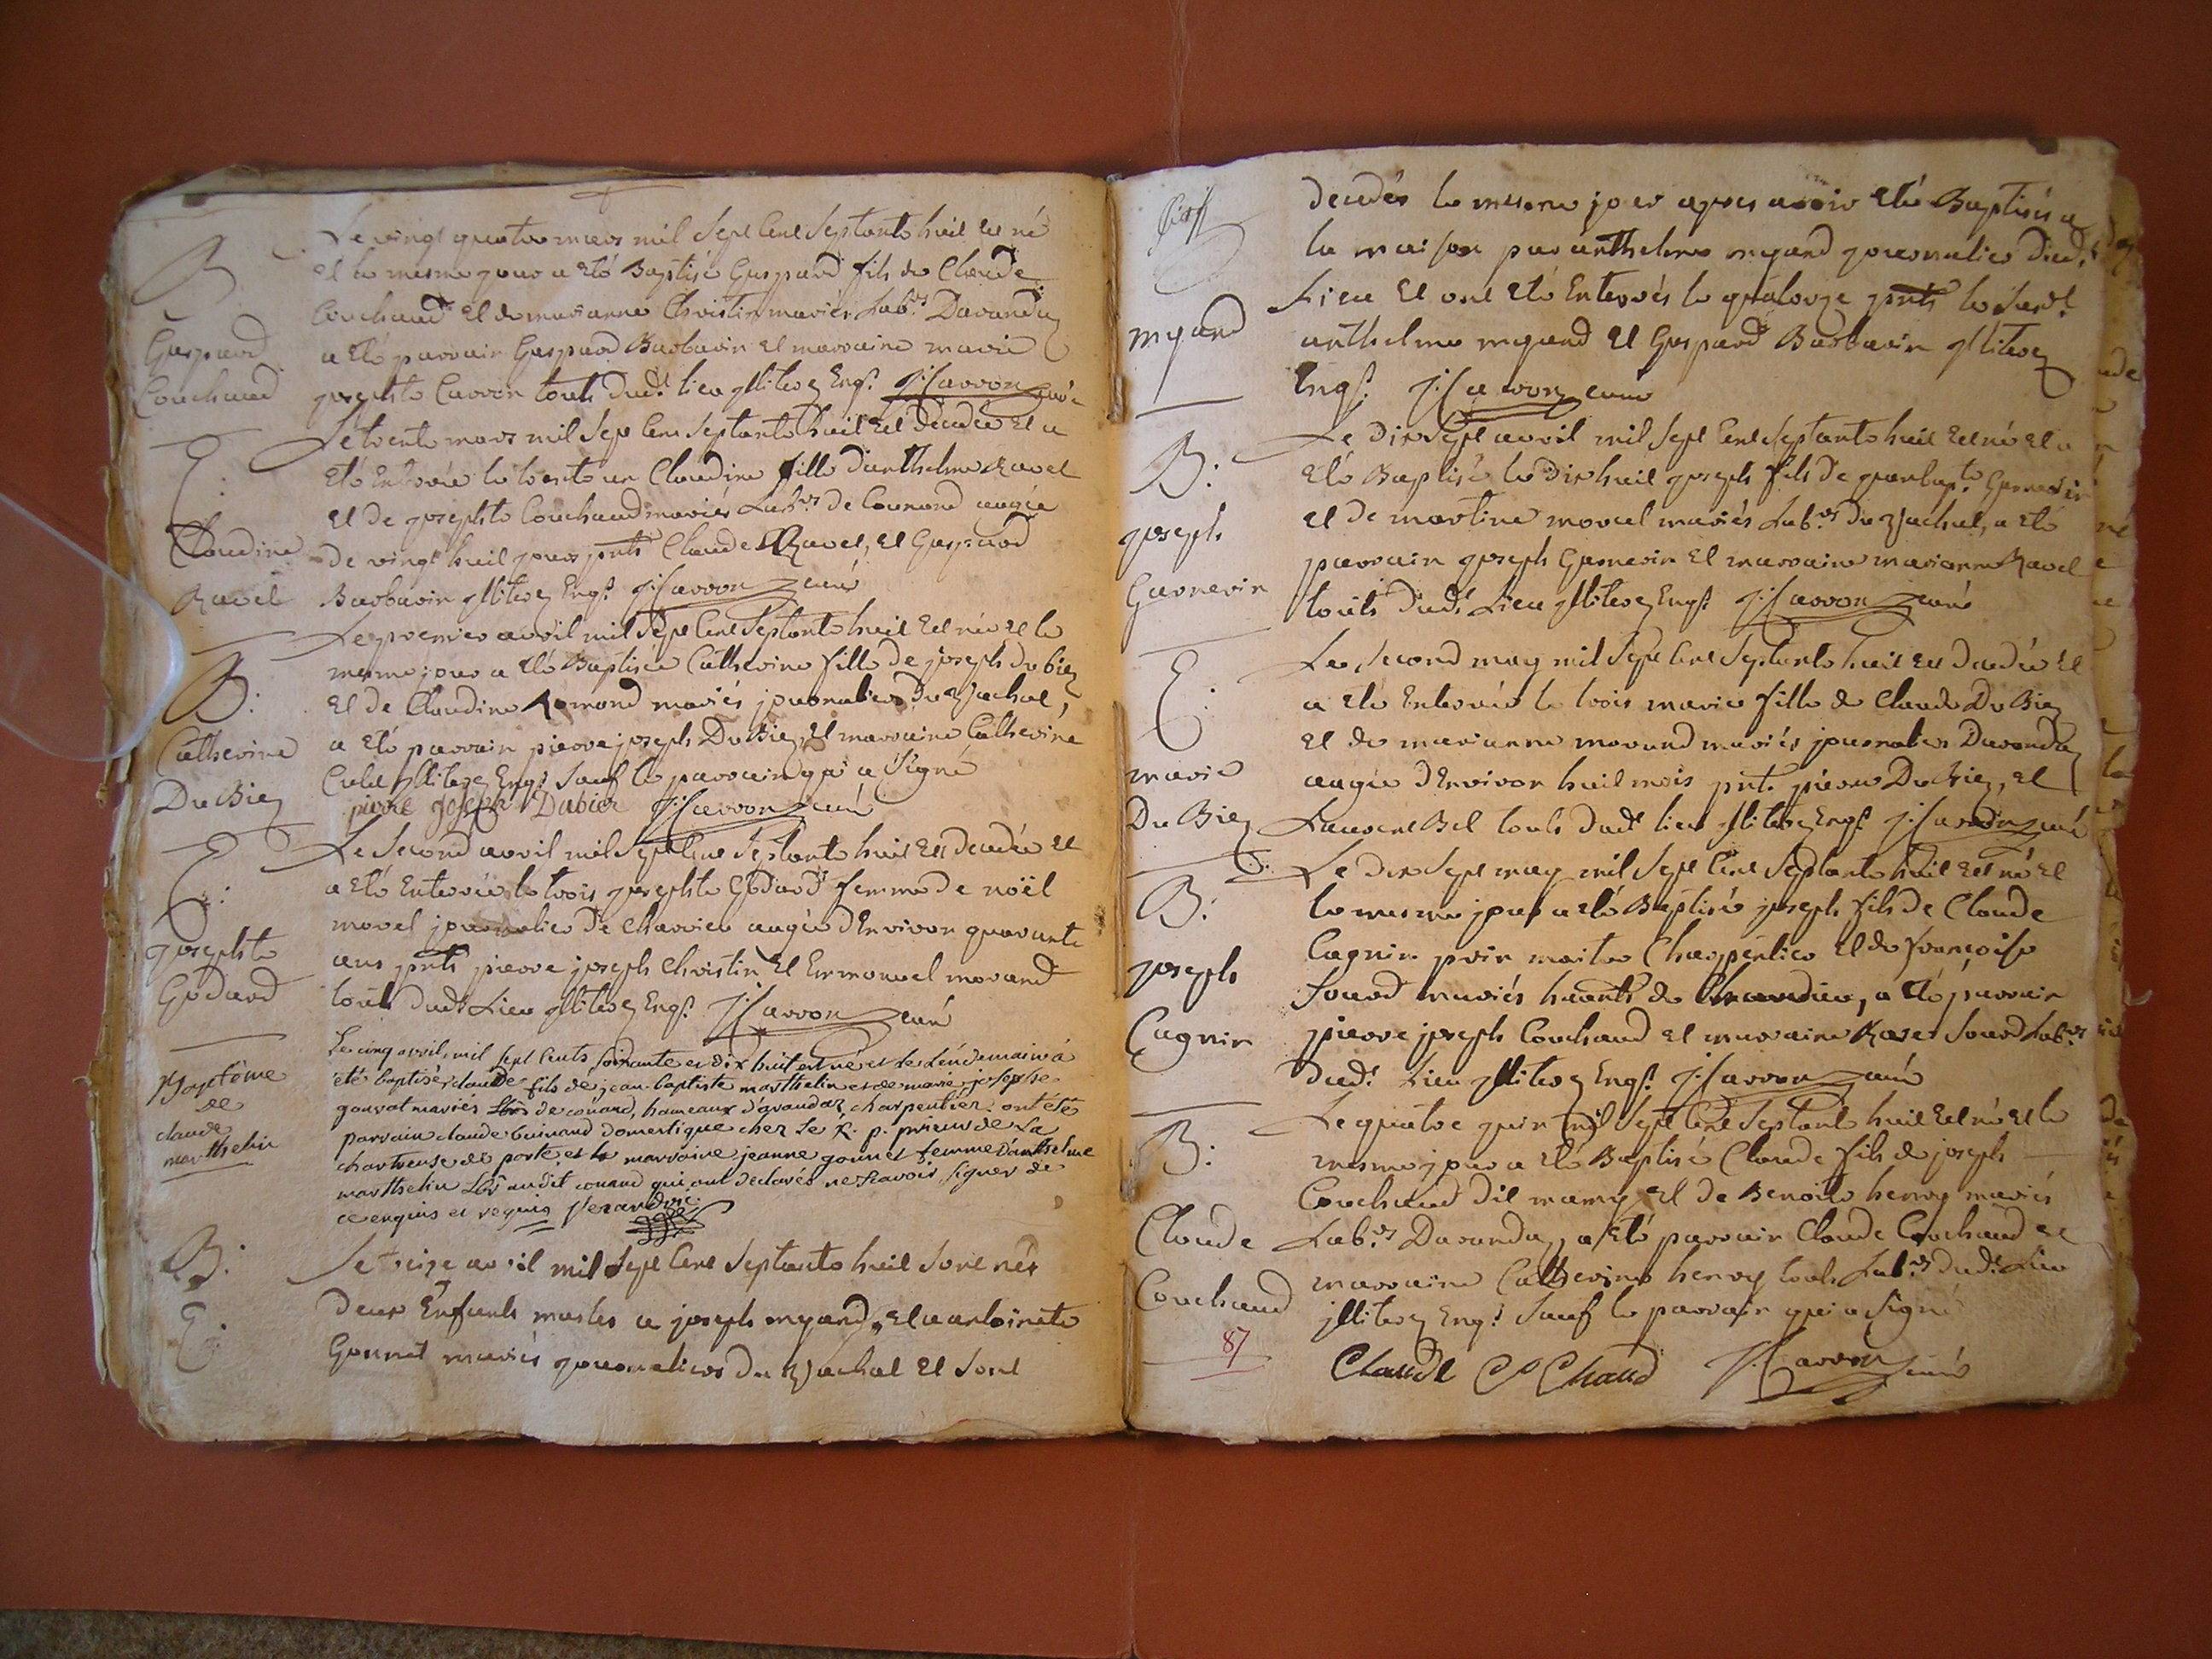 B
Gaspard
Couchaud
Le vingt quatre mars mil sept cent septante huit est né
et le mesme jour a eté Baptisé Gaspard fils de Claude
Couchaud et de marianne Christin mariés Lab.rs Davandaz
a eté parrain Gaspard Barbarin et marraine marie
josephte Carron touts dud.t lieu jlliterez Enq.s J: Carron curé
E:
Claudine
Ravel
Le trente mars mil sept cent septante huit est decedée et a
eté Enterrée le trente un Claudine fille d'anthelme Ravel
et de josephte Couchaud mariés Lab.rs de Counand augée
de vingt huit jours pnts Claude Ravel, et Gaspard
Barbarin jllitérez Enq.s J: Carron curé
B:
Catherine
Du Biez
Le premier avril mil sept cent septante huit est née et le
mesme jour a eté Baptisée Catherine fille de joseph du biez
et de Claudine Remond mariés journaliers du Vachat,
a eté parrain pierre joseph Du Biez, et marraine Catherine
jllitérez Enq.s sauf le parrain qui a signé
pierre joseph Dubiez J: Carron curé
E:
josephte
Godard
Le second avril mil sept cent septante huit est decedée et
a eté Enterrée le trois josephte Godard femme de noël
morel journalier de Charrier augée d'Environ quarante
ans pnts pierre joseph Christin et Emmanuel morand
touts dud.t Lieu jlliterez Enq.s J: Carron curé
Baptême
de
claude
marthelin
Le cinq avril, mil sept cents soixante et dix huit est né et le lendemain à
été baptisé, claude fils de jean-baptiste marthelin et de marie josephe
gonvat mariés Lbrs de coûnand, hameaux d'avandaz charpentier. ont été
parrain claude buinand domestique chez le R. p. prieur de La
chartreuse de porte, et la marraine jeanne gonnet femme d'anthelme
marthelin Lbr audit counand qui ont déclarés ne sçavoir signer de
ce enquis et requis
B:
E:
Le treize avril mil sept cent septante huit sont nés
deux Enfants masles a joseph mgand, et a antoinete
Gonnet mariés journaliers du Vachat et sont
mgand
decedés le mesme jour apres avoir eté Baptisés a
la maison par anthelme mgand journalier dud.t
Lieu et ont eté Enterrés le quatorze pnts le susd.t
anthelme mgand et Gaspard Barbarin jlliterez
Enq.s J: Carron curé
B:
joseph
Garnerin
Le dix sept avril mil sept cent septante huit est né et a
eté Baptisé le dix huit joseph fils de jean bap.te Garnerin
et de martine morel mariés Lab.rs du Vachat, a eté
parrain joseph Garnerin et marraine marianne Ravel
touts dud.t Lieu jlliterez Enq.s J: Carron curé
E:
marie
Du Biez
Le second may mil sept cent septante huit est decedée et
a eté Enterrée le trois marie fille de Claude Du Biez
et de marianne morand mariés journaliers Davandaz
augée d'Environ huit mois pnts. pierre Du Biez, et
Laurent Bel touts dud.t lieu jlliterez Enq.s J: Carron curé
B:
joseph
Cagnin
Le dix sept may mil sept cent septante huit est né et
le mesme jour a eté Baptisé joseph fils de Claude
Cagnin maitre Charpentier et de françoise
Sourd mariés habts de, a eté parrain
pierre joseph Couchaud et marraine Rose Sourd Lab.rs
dud.t Lieu jlliterez Enq.s J: Carron curé
B:
Claude
Couchaud
87
Le quatre juin mil sept cent septante huit est né et le
mesme jour a eté Baptisé Claude fils de joseph
Couchaud dit mamy et de Benoite henry mariés
Lab.rs Davandaz, a eté parrain Claude Couchaud et
marraine Catherine henry touts Lab.rs dud.t Lieu
jlliterez Enq.s sauf le parrain qui a signé
Claude Cochaud J: Carron curé